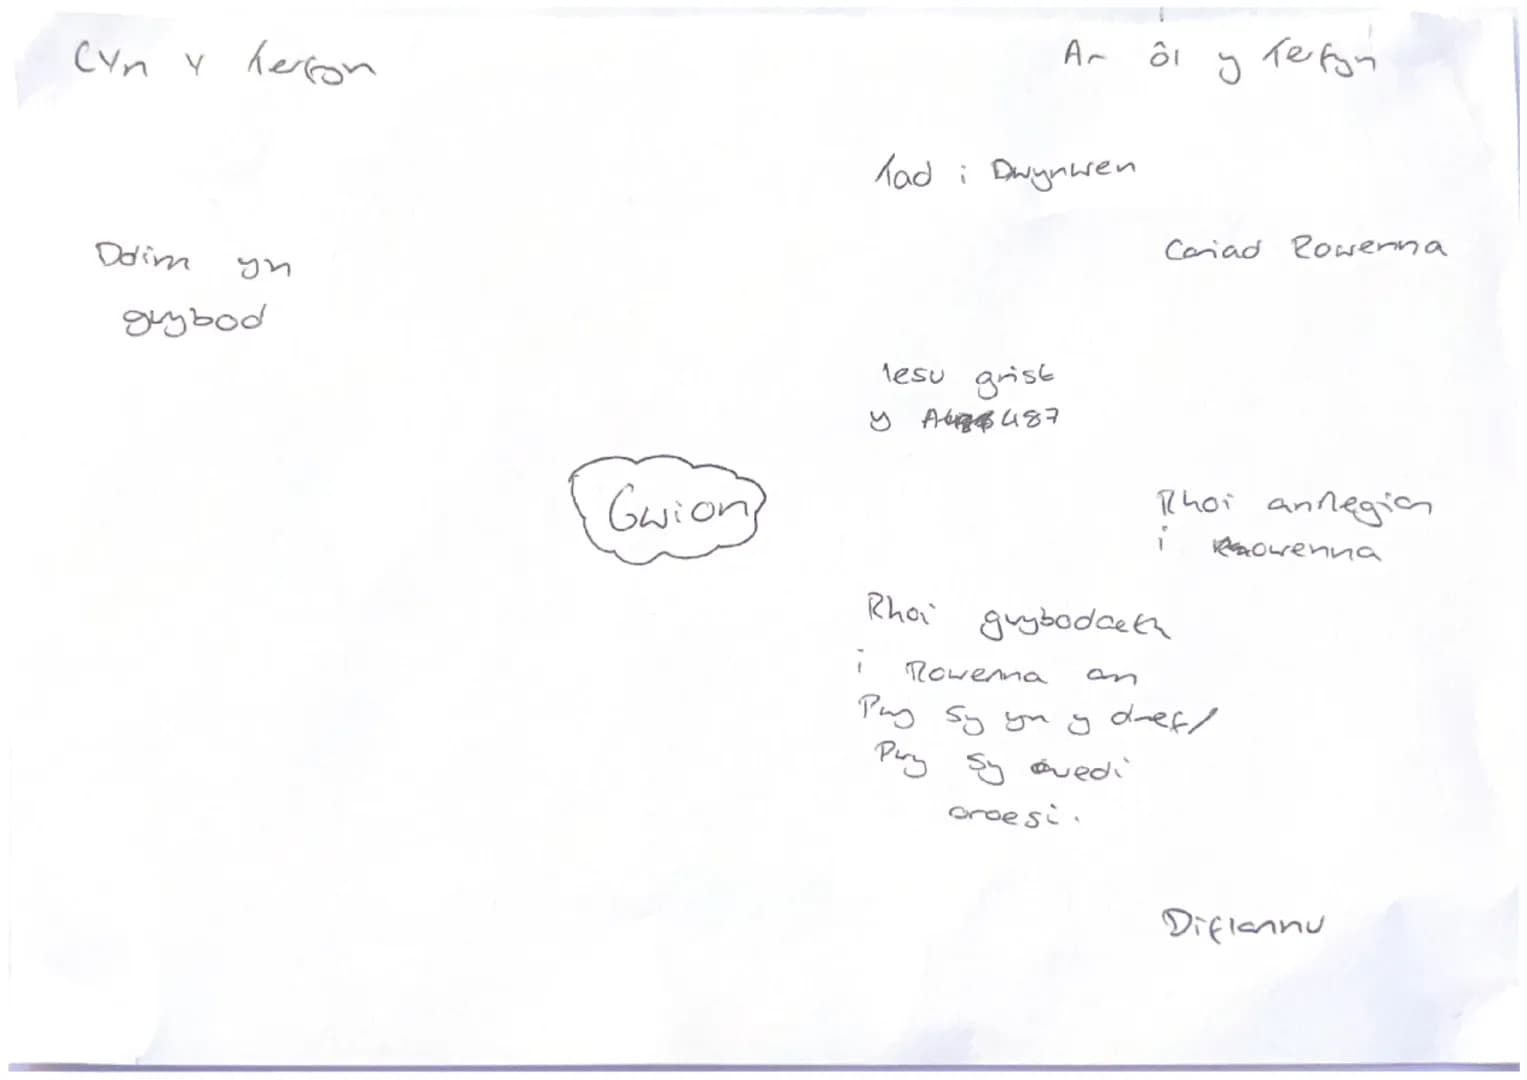 Cyn y terfyn
Ar ôl y Terfyn
Tad i Dwynwen
Cariad Rowenna
Ddim yn
gwybod
Iesu grist
y A487
Gwion
Rhoi anrhegion
i Rowenna
Rhoi gwybodaeth
i Rowenna an
Pwy sy yn y dref/
Pwy sy wedi
croesi.
Diflannu